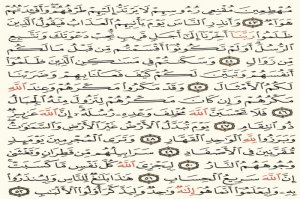 مُهْطِعِينَ مُقْنِعِى رُءُوسِهِمْ لَا يَرْتَدُّ إِلَيْهِمْ طَرْفُهُمْ وَأَفْـِٔدَتُهُمْ
هَوَآءٌ ٤٣ وَأَنذِرِ ٱلنَّاسَ يَوْمَ يَأْتِيهِمُ ٱلْعَذَابُ فَيَقُولُ ٱلَّذِينَ
ظَلَمُوا۟ رَبَّنَآ أَخِّرْنَآ إِلَىٰٓ أَجَلٍ قَرِيبٍ نُّجِبْ دَعْوَتَكَ وَنَتَّبِعِ
ٱلرُّسُلَ أَوَلَمْ تَكُونُوٓا۟ أَقْسَمْتُم مِّن قَبْلُ مَا لَكُم
مِّن زَوَالٍ ٤٤ وَسَكَنتُمْ فِى مَسَٰكِنِ ٱلَّذِينَ ظَلَمُوٓا۟
أَنفُسَهُمْ وَتَبَيَّنَ لَكُمْ كَيْفَ فَعَلْنَا بِهِمْ وَضَرَبْنَا
لَكُمُ ٱلْأَمْثَالَ ٤٥ وَقَدْ مَكَرُوا۟ مَكْرَهُمْ وَعِندَ ٱللَّهِ
مَكْرُهُمْ وَإِن كَانَ مَكْرُهُمْ لِتَزُولَ مِنْهُ ٱلْجِبَالُ
٤٦ فَلَا تَحْسَبَنَّ ٱللَّهَ مُخْلِفَ وَعْدِهِۦ رُسُلَهُۥٓ إِنَّ ٱللَّهَ عَزِيزٌ
ذُو ٱنتِقَامٍ ٤٧ يَوْمَ تُبَدَّلُ ٱلْأَرْضُ غَيْرَ ٱلْأَرْضِ وَٱلسَّمَٰوَٰتُ
وَبَرَزُوا۟ لِلَّهِ ٱلْوَٰحِدِ ٱلْقَهَّارِ ٤٨ وَتَرَى ٱلْمُجْرِمِينَ يَوْمَئِذٍ
مُّقَرَّنِينَ فِى ٱلْأَصْفَادِ ٤٩ سَرَابِيلُهُم مِّن قَطِرَانٍ وَتَغْشَىٰ
وُجُوهَهُمُ ٱلنَّارُ ٥٠ لِيَجْزِىَ ٱللَّهُ كُلَّ نَفْسٍ مَّا كَسَبَتْ
إِنَّ ٱللَّهَ سَرِيعُ ٱلْحِسَابِ ٥١ هَٰذَا بَلَٰغٌ لِّلنَّاسِ وَلِيُنذَرُوا۟
بِهِۦ وَلِيَعْلَمُوٓا۟ أَنَّمَا هُوَ إِلَٰهٌ وَٰحِدٌ وَلِيَذَّكَّرَ أُو۟لُوا۟ ٱلْأَلْبَٰبِ ٥٢